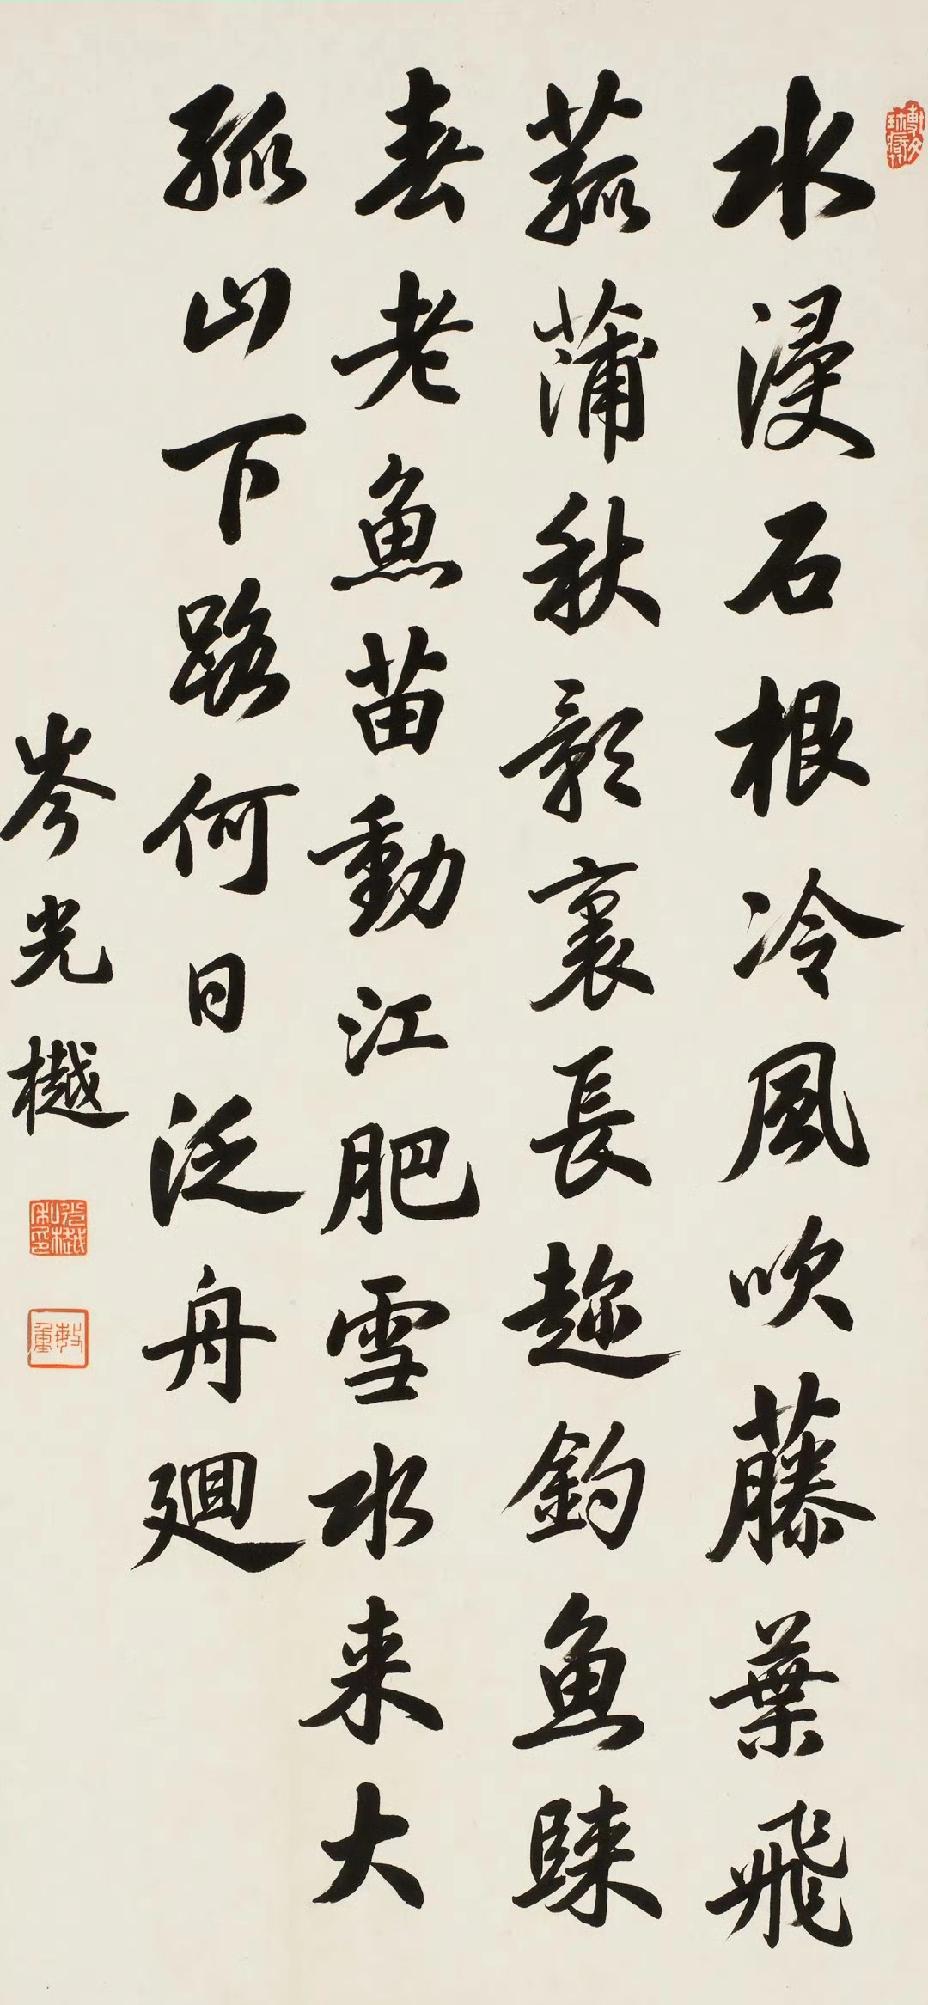 水浸石根冷風吹藤葉飛
菰蒲秋影裏長趂釣魚歸
春老魚苗動江肥雪水来大
孤山下路何日泛舟廻
岑光樾
光樾私印